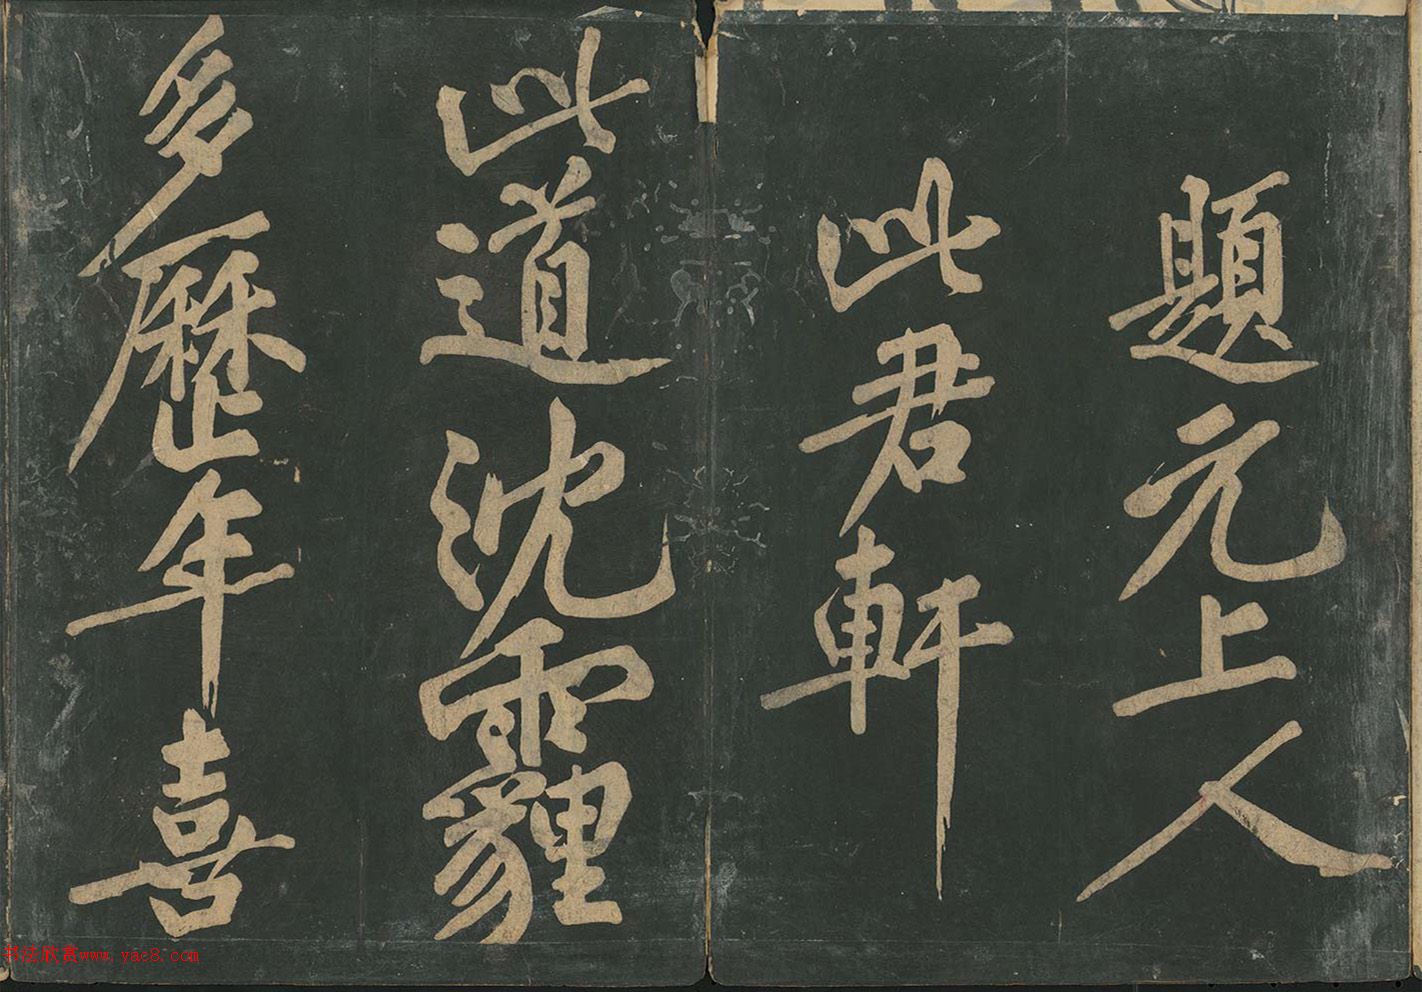 題元上人
此君軒
此道沈霾
多歷年喜
书法欣赏www.yac8.com